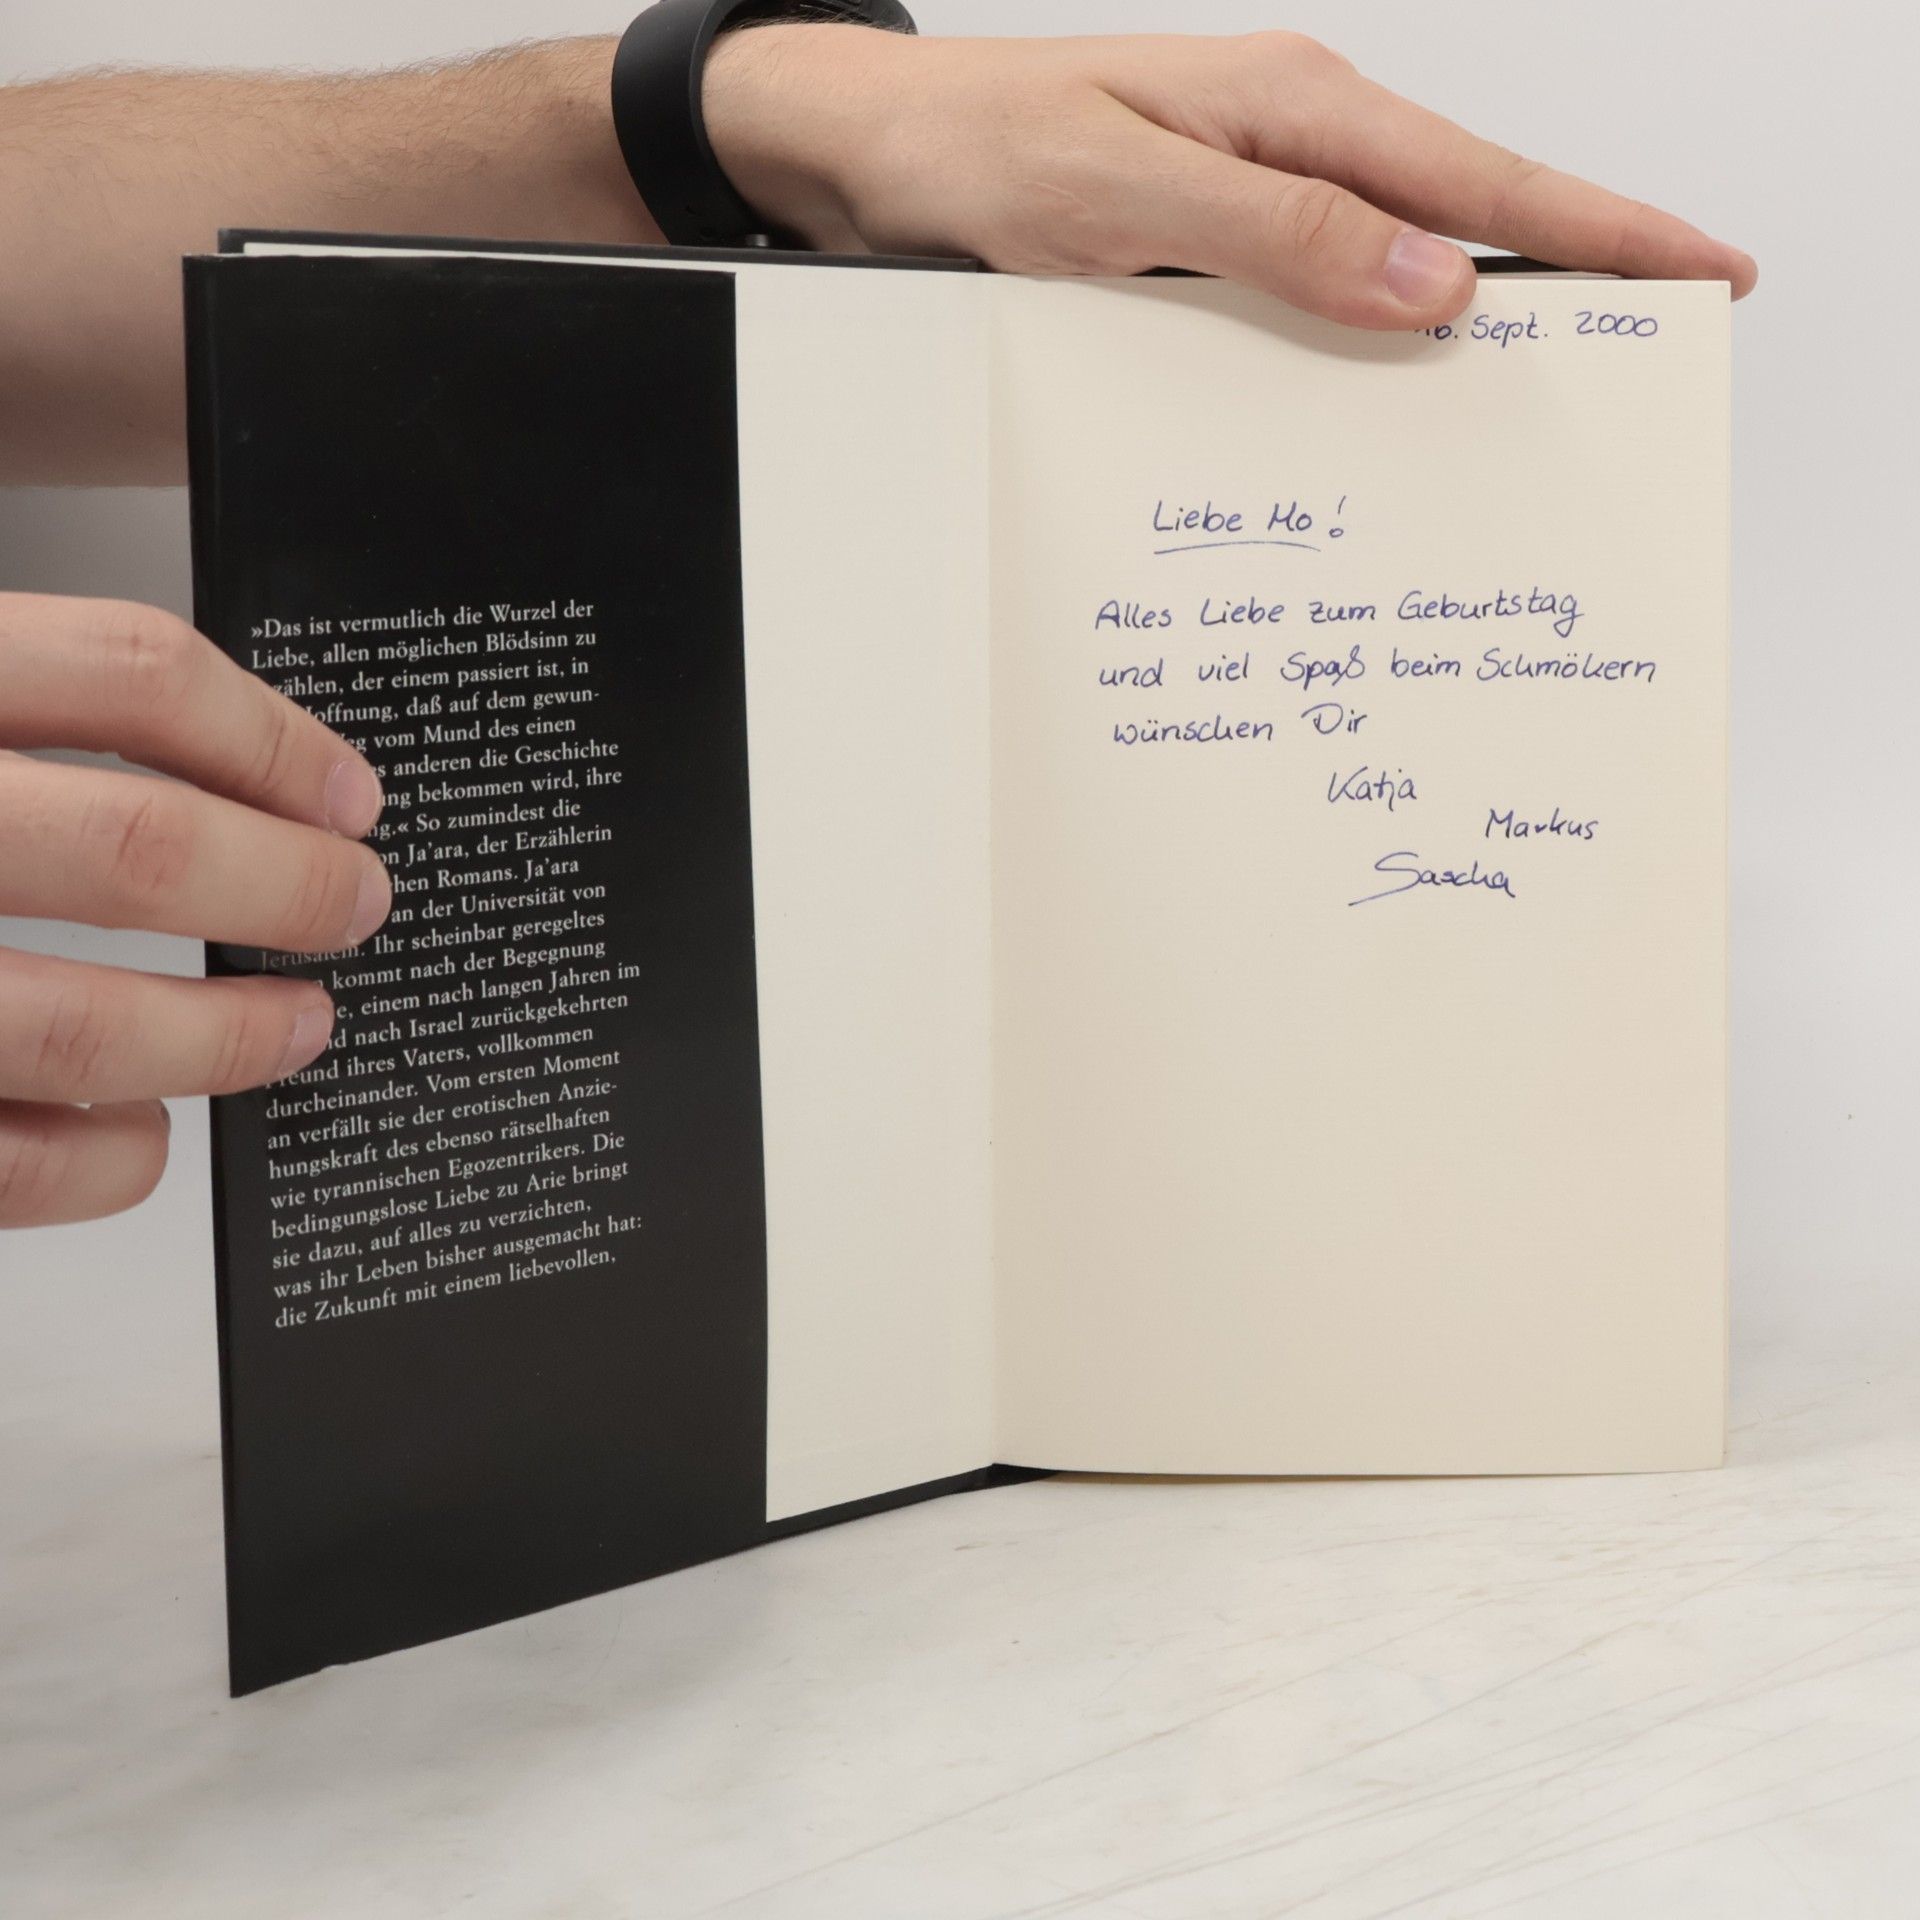 »Das ist vermutlich die Wurzel der
Liebe, allen möglichen Blödsinn zu
zählen, der einem passiert ist, in
offnung, daß auf dem gewun-
vom Mund des einen
anderen die Geschichte
bekommen wird, ihre
So zumindest die
Ja’ara, der Erzählerin
Romans. Ja’ara
an der Universität von
Jerusalem. Ihr scheinbar geregeltes
kommt nach der Begegnung
einem nach langen Jahren im
nach Israel zurückgekehrten
Freund ihres Vaters, vollkommen
durcheinander. Vom ersten Moment
an verfällt sie der erotischen Anzie-
hungskraft des ebenso rätselhaften
wie tyrannischen Egozentrikers. Die
bedingungslose Liebe zu Arie bringt
sie dazu, auf alles zu verzichten,
was ihr Leben bisher ausgemacht hat:
die Zukunft mit einem liebevollen,
16. Sept. 2000
Liebe Mo!
Alles Liebe zum Geburtstag
und viel Spaß beim Schmökern
wünschen Dir
Katja
Markus
Sascha